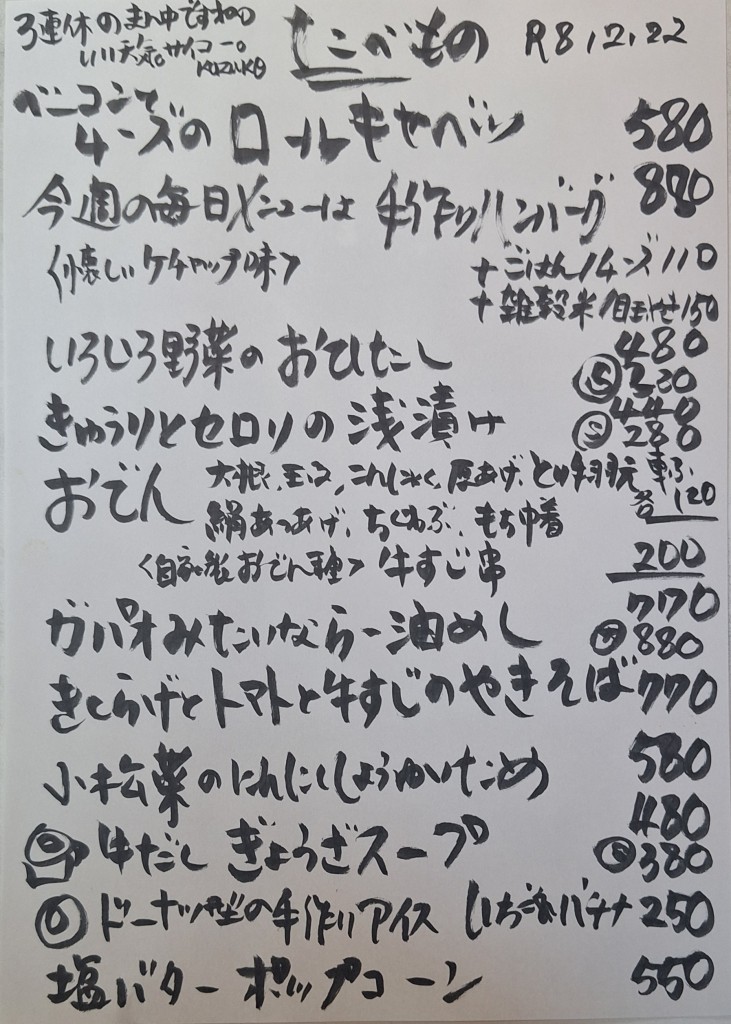 3連休のまん中ですねの
いい天気。サイコー。
KAZUKO
たべもの R8,12,22
ベーコンと
チーズのロールキャベツ 580
今週の毎日メニューは手作りハンバーグ 880
〈懐しいケチャップ味〉 +ごはん/チーズ110
+雑穀米/目玉やき150
いろいろ野菜のおひたし 480
Ⓢ330
きゅうりとセロリの浅漬け 440
Ⓢ280
おでん 大根、玉子、こんにゃく、厚あげ、とり手羽元、車ふ
絹あつあげ、ちくわぶ、もち巾着 各120
〈自家製おでん種〉牛すじ串 200
ガパオみたいならー油めし 770
880
きくらげとトマトと牛すじのやきそば 770
小松菜のにんにくしょうゆいため 580
牛だしぎょうざスープ 480
Ⓢ380
ドーナツ型の手作りアイス いちご&バナナ 250
塩バターポップコーン 550